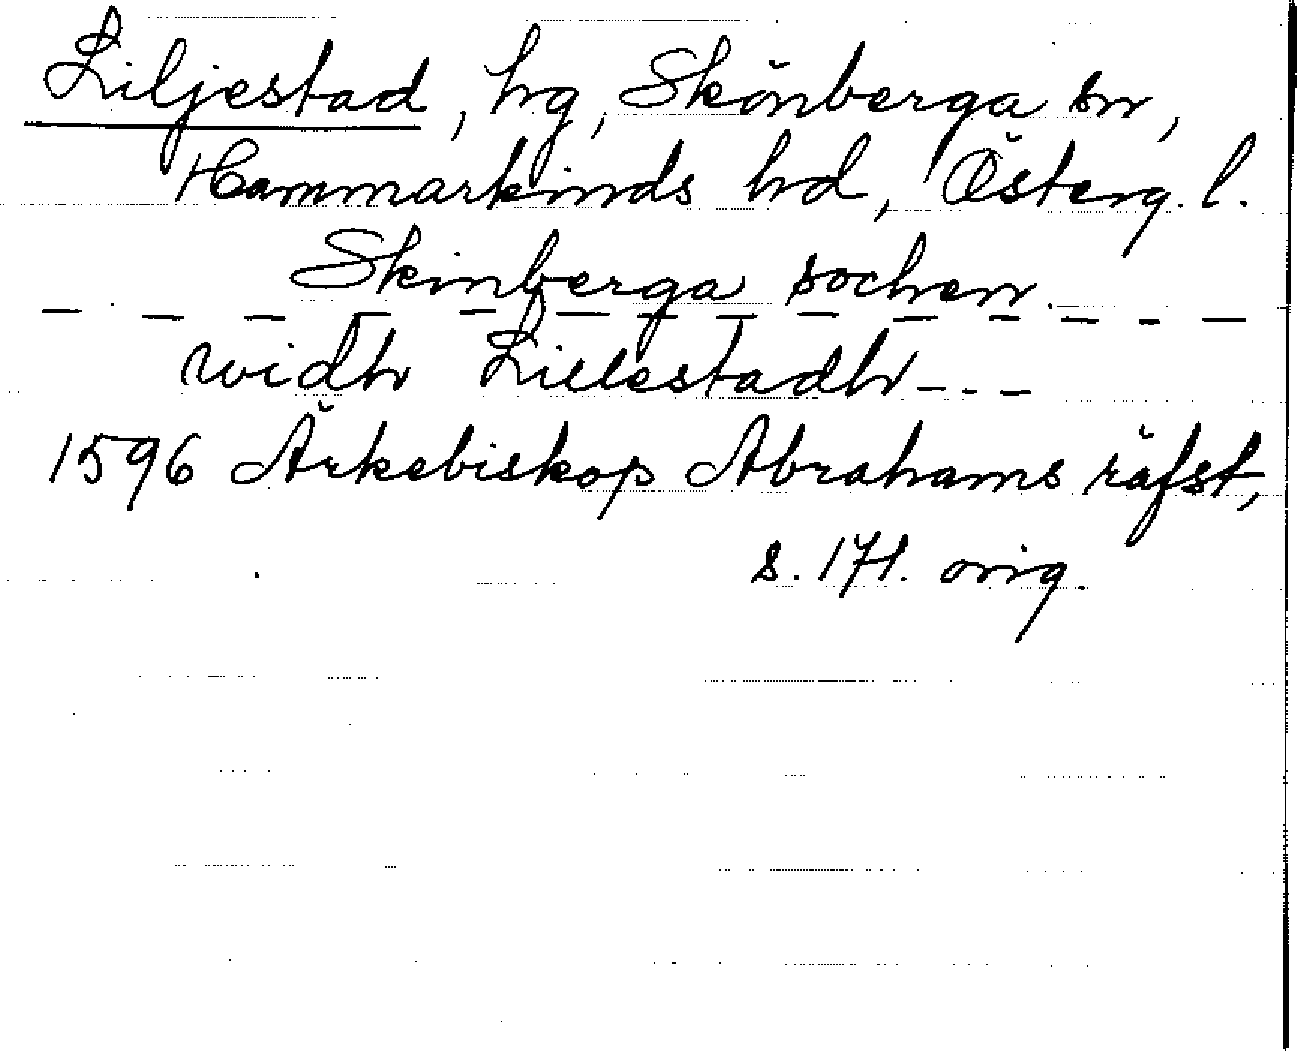 Liljestad, hg, Skönberga sn,
Hammarkinds hd, Österg. l.
Skinberga sochen.
- - - - - - - - - - - - - -
widh Lillestadh - - -
1596 Ärkebiskop Abrahams räfst,
s. 171. orig.